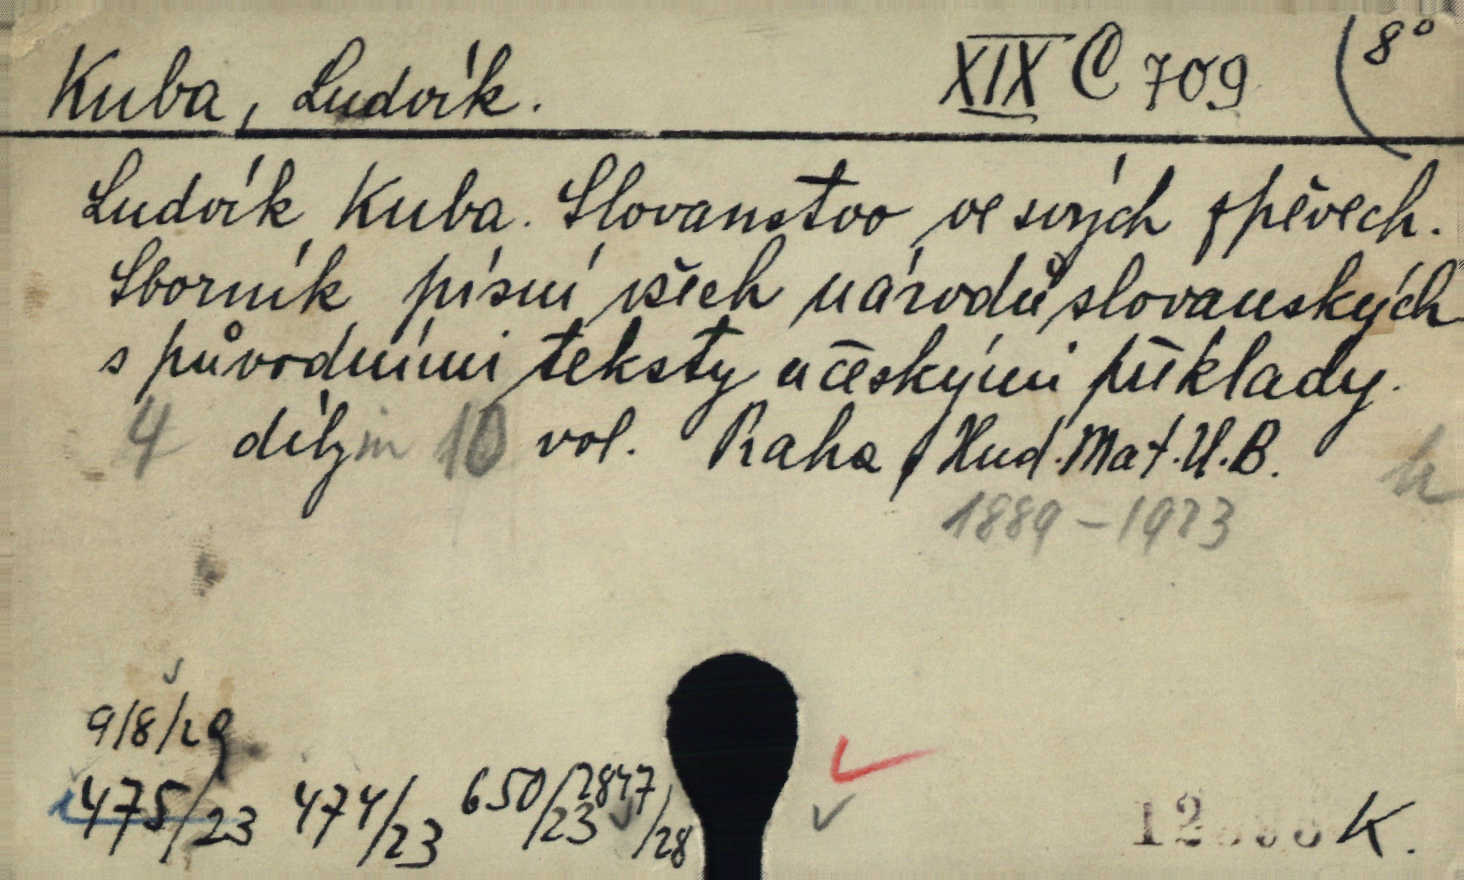 Kuba, Ludvík. XIX C 709 (8°
Ludvík Kuba. Slovanstvo ve svých zpěvech.
Sborník písní všech národů slovanských
s původními teksty a českými překlady.
4 díly in 10 vol. Praha, Hud. Mat. U. B.
1889-1923
9/8/29
475/23 474/23 650/23 2847/28
K.